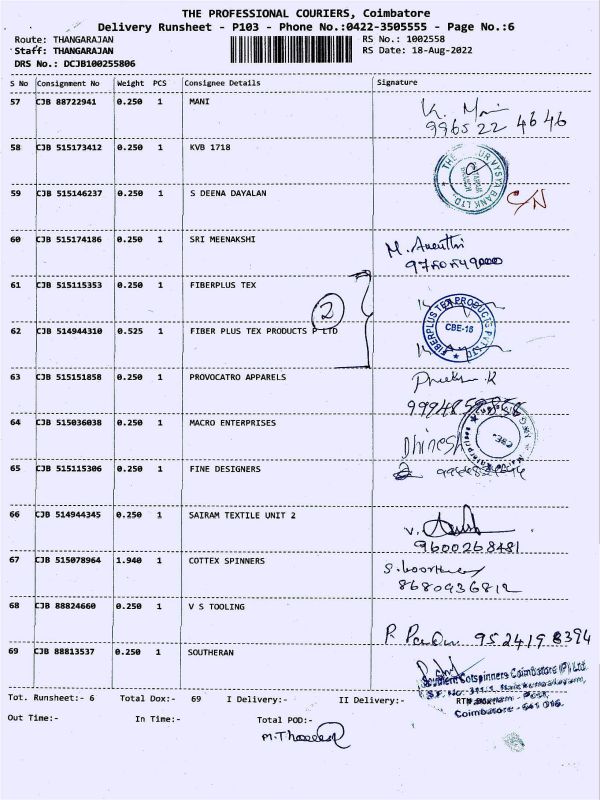 THE PROFESSIONAL COURIERS, Coimbatore
Delivery Runsheet - P103 - Phone No.:0422-3505555 - Page No.:6
Route: THANGARAJAN RS No.: 1002558
Staff: THANGARAJAN RS Date: 18-Aug-2022
DRS No.: DCJB100255806
S No Consignment No Weight PCS Consignee Details Signature
57 CJB 88722941 0.250 1 MANI K. Mani
9965 22 46 46
58 CJB 515173412 0.250 1 KVB 1718
VYSYA BANK LTD
59 CJB 515146237 0.250 1 S DEENA DAYALAN C/N
60 CJB 515174186 0.250 1 SRI MEENAKSHI M.
61 CJB 515115353 0.250 1 FIBERPLUS TEX
2
FIBERPLUS TEX PRODUCTS PVT LTD
CBE-18
62 CJB 514944310 0.525 1 FIBER PLUS TEX PRODUCTS P LTD
63 CJB 515151858 0.250 1 PROVOCATRO APPARELS
64 CJB 515036038 0.250 1 MACRO ENTERPRISES Dhinesh
65 CJB 515115306 0.250 1 FINE DESIGNERS
66 CJB 514944345 0.250 1 SAIRAM TEXTILE UNIT 2 V.
9600268481
67 CJB 515078964 1.940 1 COTTEX SPINNERS S.
8680936812
68 CJB 88824660 0.250 1 V S TOOLING
R 9524198394
69 CJB 88813537 0.250 1 SOUTHERAN
Southern Cotspinners Coimbatore (P) Ltd.
S.F. No.
Post,
Coimbatore - 641 016.
Tot. Runsheet:- 6 Total Dox:- 69 I Delivery:- II Delivery:- RTN
Out Time:- In Time:- Total POD:-
M.